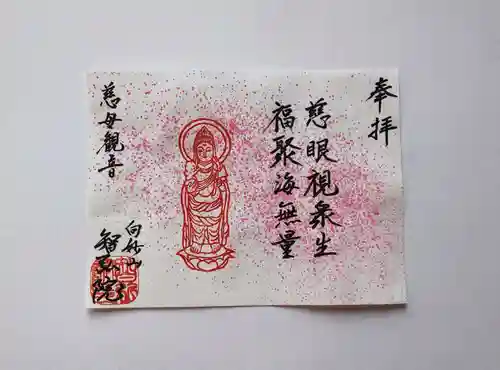 奉拝
慈眼視衆生
福聚海無量
慈母観音
白妙山
智弘院